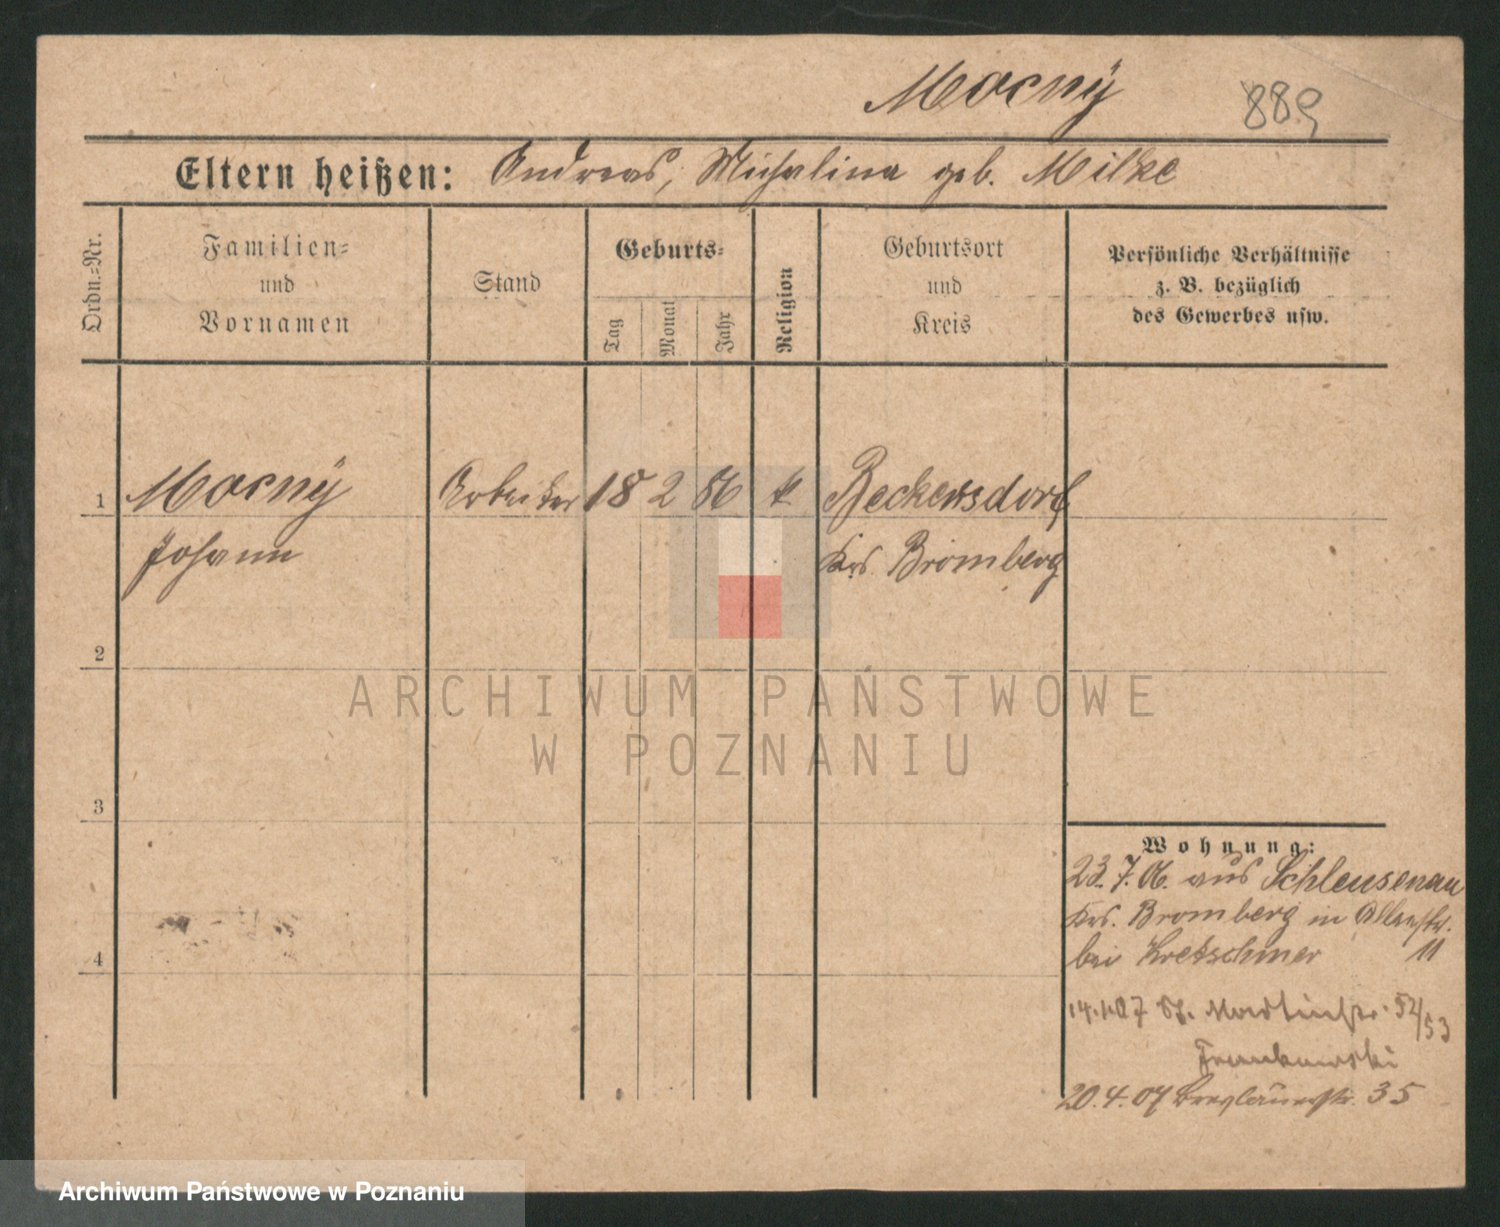 Mocny 889
Eltern heißen: Andreas, Michalina geb. Milke
Ordn.=Nr.
Familien=
und
Vornamen
Stand
Geburts=
Tag
Monat
Jahr
Religion
Geburtsort
und
Kreis
Persönliche Verhältnisse
z. B. bezüglich
des Gewerbes usw.
1 Mocny Arbeiter 18 2 86 k Beckersdorf
Johann Krs. Bromberg
2
3
4
Wohnung:
23.7.06. aus Schleusenau
Krs. Bromberg in Allerstr.
bei Kretschmer 11
14.1.07 St. Martinstr. 52/53
Frankowski
20.4.07 Breslauerstr. 35
ARCHIWUM PAŃSTWOWE
W POZNANIU
Archiwum Państwowe w Poznaniu